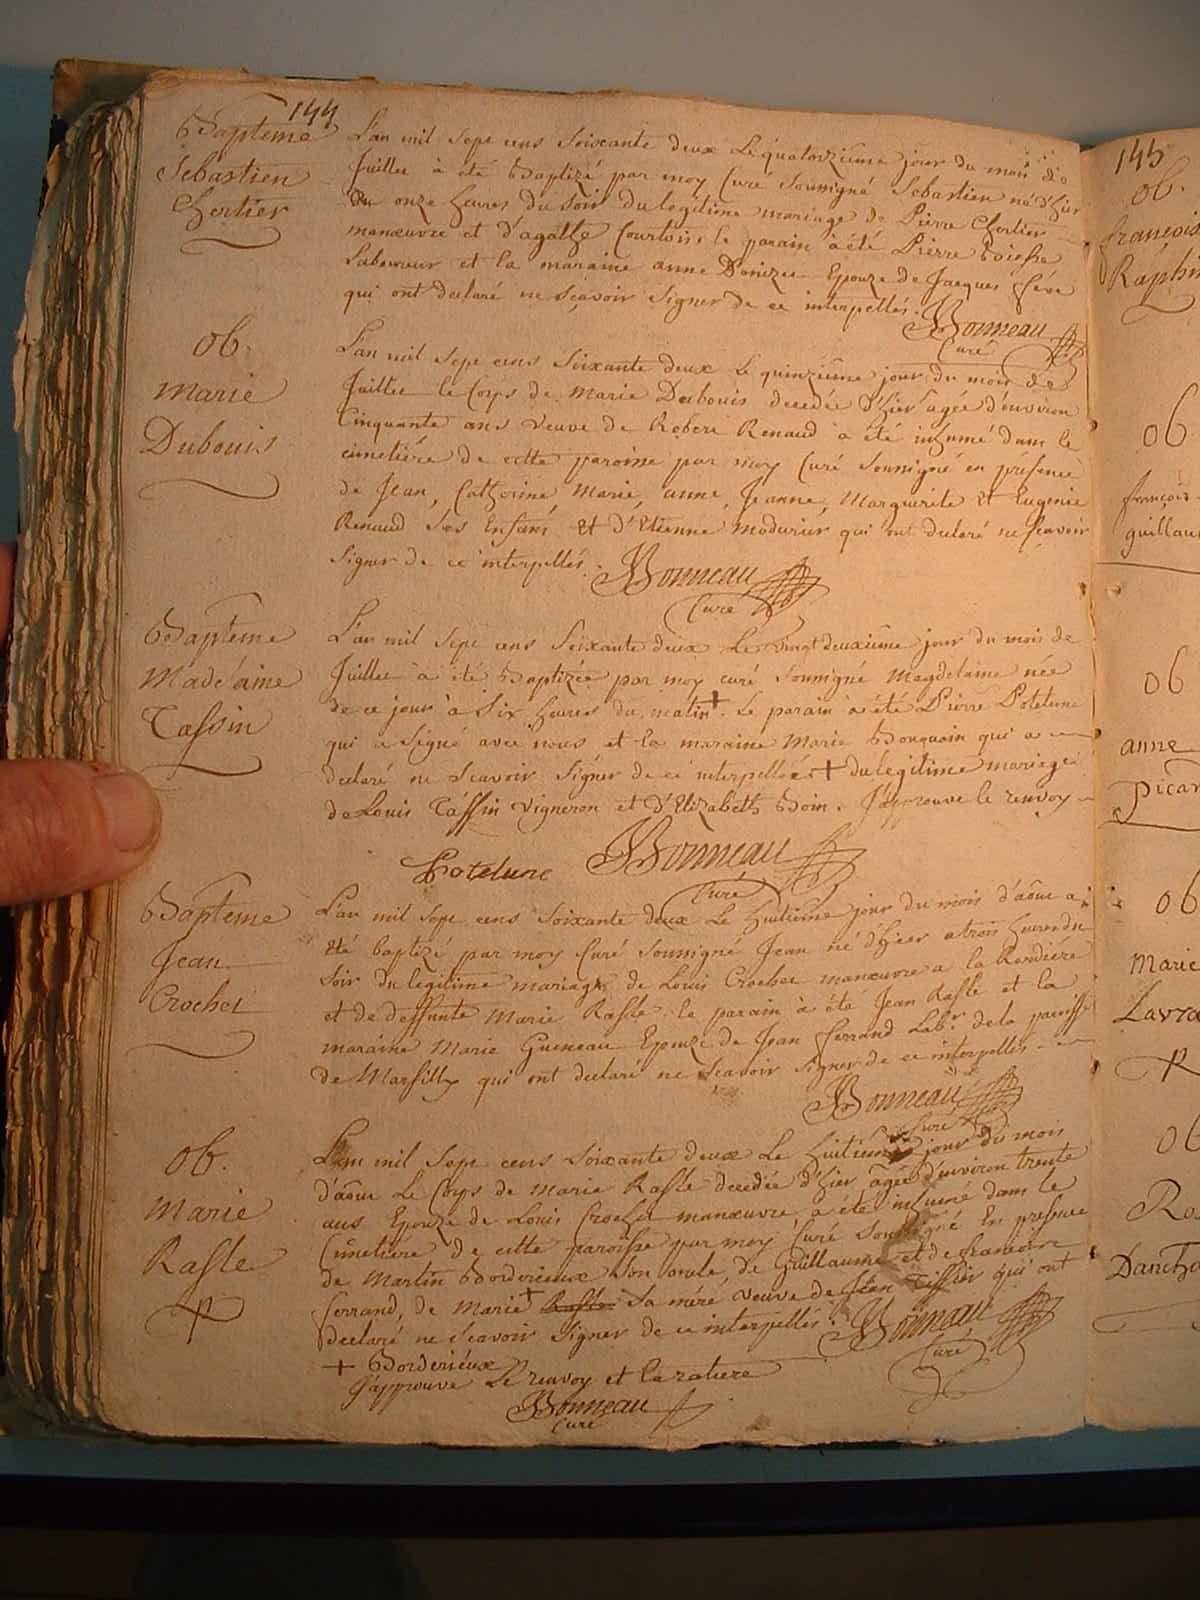 144
Bapteme
Sebastien
Chertier
L'an mil sept cens soixante deux Le quatorzième jour du mois de
Juillet à été Baptizé par moy Curé soussigné Sebastien né d'hier
onze heures du soir du legitime mariage de Pierre Chertier
manœuvre et d'agathe Courtois, le parain à été Pierre
Laboureur et la maraine anne Denizet Epouze de Jacques
qui ont declaré ne sçavoir signer de ce interpellés.
Bonneau
Curé
ob.
marie
Dubouis
L'an mil sept cens soixante deux Le quinzième jour du mois de
Juillet le Corps de Marie Dubouis decedée d'hier agée d'environ
Cinquante ans veuve de Robert Renaud à été inhumé dans le
cimetière de cette paroisse par moy Curé soussigné en présence
de Jean, Catherine Marie, anne, Jeanne, Marguerite et Eugenie
Renaud ses Enfans et d'Etienne Modurier qui ont declaré ne scavoir
signer de ce interpellés.
Bonneau
Curé
Bapteme
Madelaine
Tassin
L'an mil sept cens soixante deux Le vingt deuxième jour du mois de
Juillet à été Baptizée par moy curé soussigné Magdelaine née
de ce jour à six heures du matin + Le parain à été Pierre Potelune
qui a signé avec nous et la maraine Marie Bouquain qui a
declaré ne scavoir signer de ce interpellée + du legitime mariage
de Louis Tassin vigneron et d'Elizabeth Boin. J'approuve le renvoy
Potelune Bonneau
Curé
Bapteme
Jean
Crochet
L'an mil sept cens soixante deux Le huitième jour du mois d'août a
été baptizé par moy Curé soussigné Jean né d'hier a trois heures du
soir du legitime mariage de Louis Crochet manœuvre a la
et de deffunte Marie Rasle. le parain à été Jean Rasle et la
maraine Marie Gueneau Epouze de Jean ferrand Labr. de la paroisse
de Marsilly qui ont declaré ne scavoir signer de ce interpellés
Bonneau
Curé
ob.
Marie
Rasle
L'an mil sept cens soixante deux Le huitième jour du mois
d'août Le Corps de Marie Rasle decedée d'hier âgée d'environ trente
ans Epouze de Louis Crochet manœuvre à été inhumé dans le
Cimetière de cette paroisse par moy Curé soussigné En presence
de Martin Borderieux son oncle, de Guillaume et de francoise
ferrand, de Marie + Rasle sa mére veuve de Jean qui ont
declaré ne scavoir signer de ce interpellés.
Bonneau
Curé
+ Borderieux
J'approuve Le renvoy et la rature
Bonneau
Curé
145
ob.
françois
Raphin
ob.
françois
guillau
ob
anne
picar
ob
Marie
Lavra
ob
Ro
Dancho